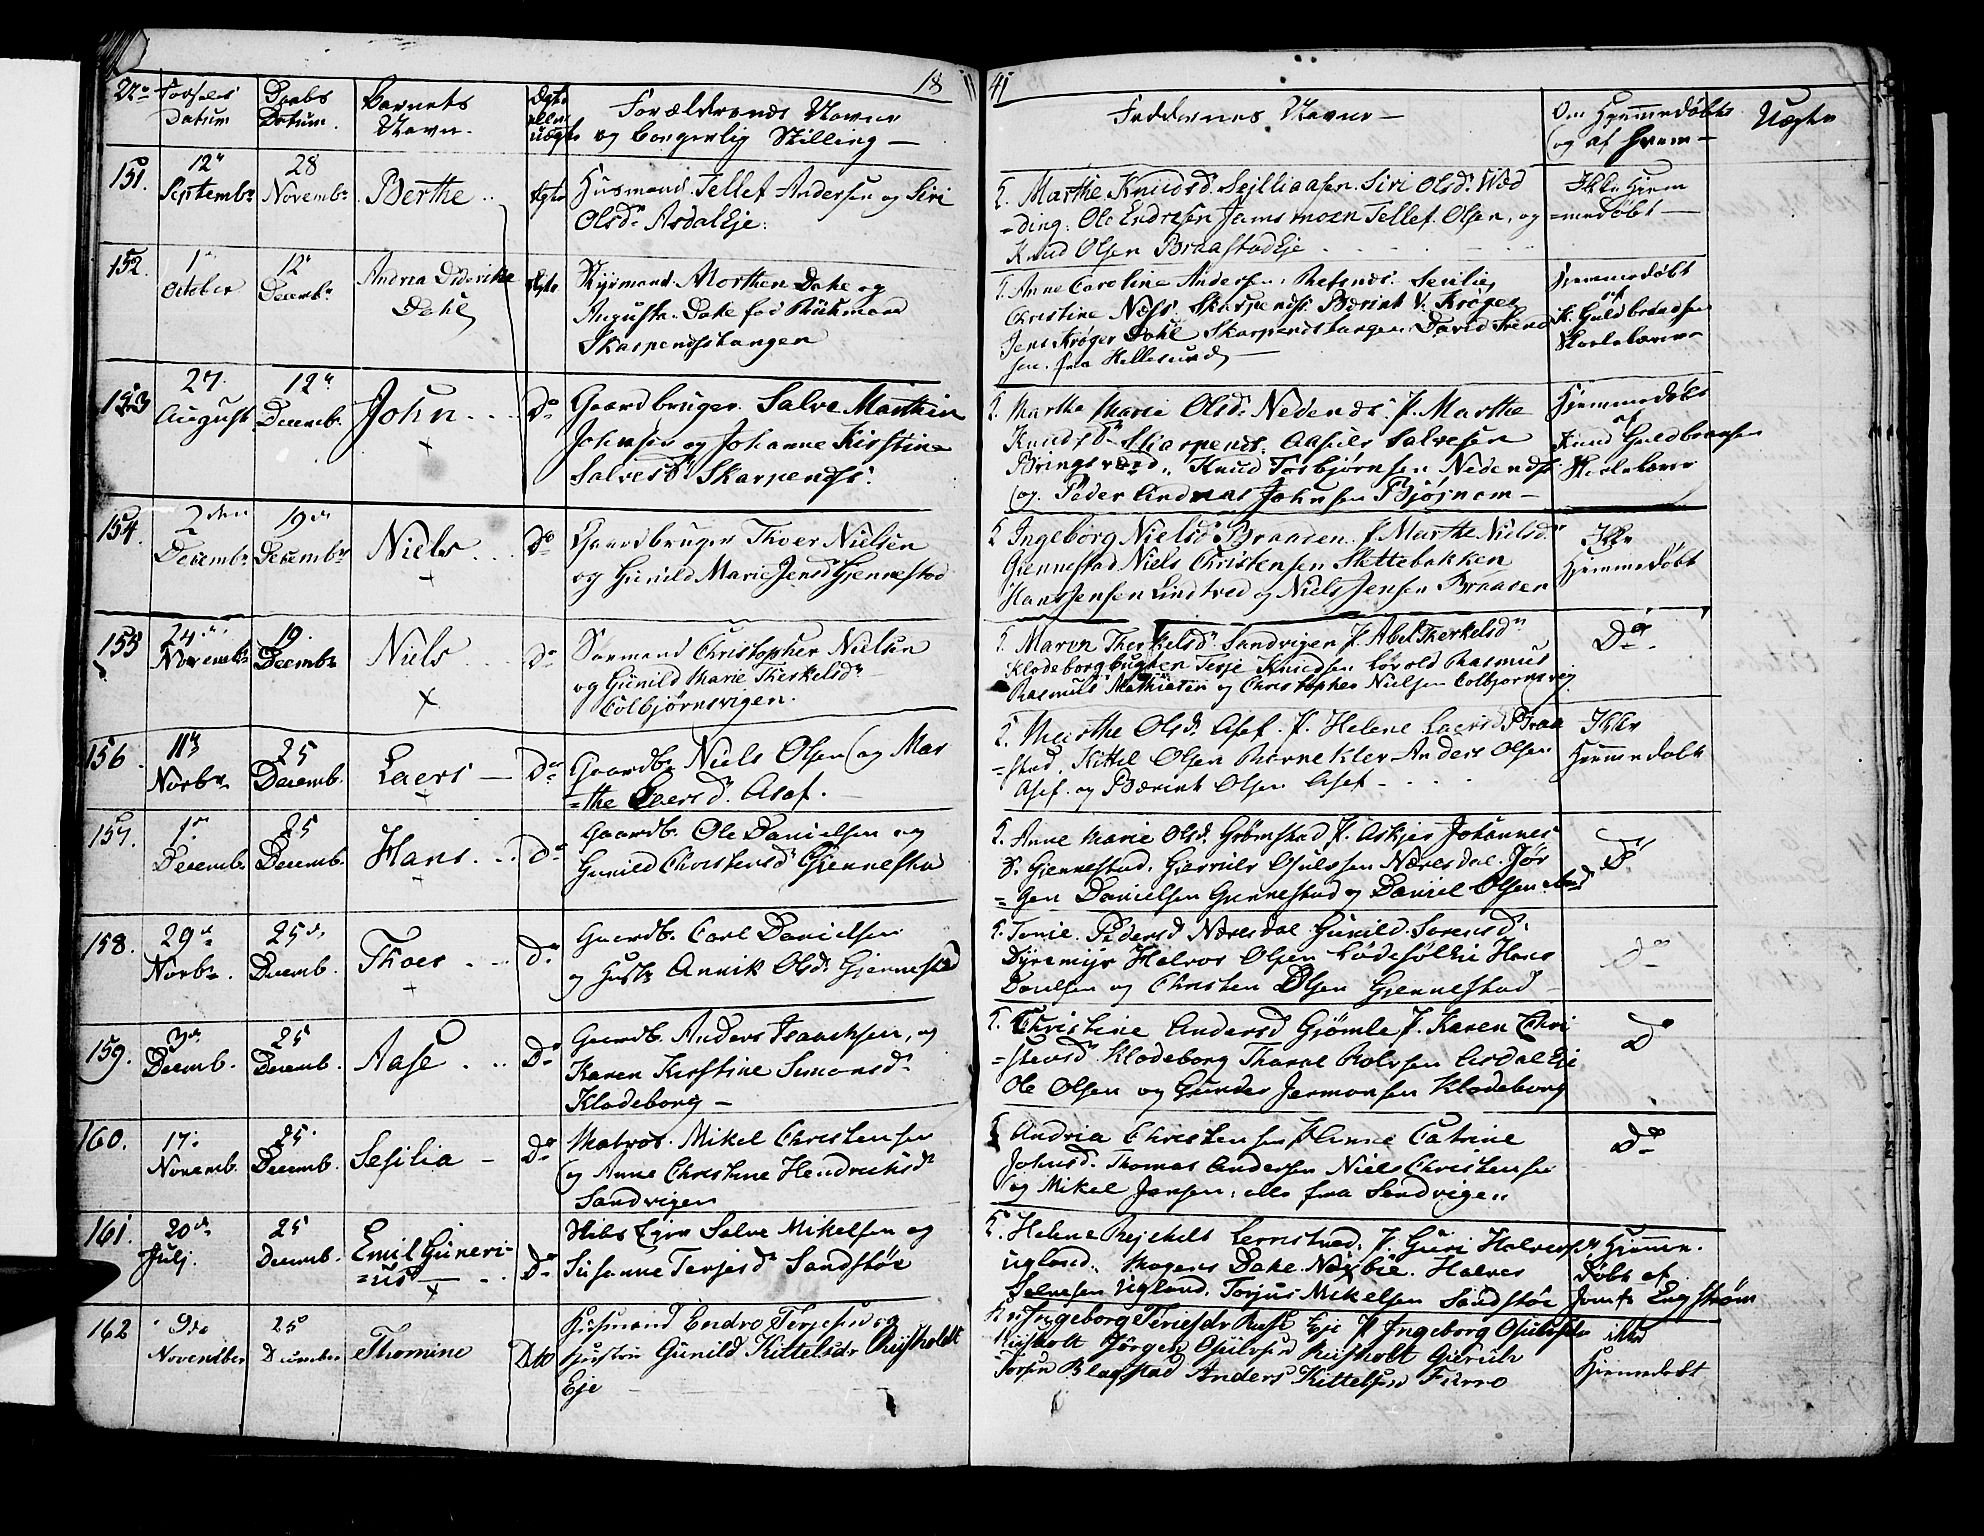 18 41
No Fødsels Datum
Daabs Datum.
Barnets Navn.
Ægte eller uægte
Forældrenes Navne og borgerlig Stilling —
Faddernes Navne —
Om Hjemmedøbt og af hvem —
151.
12
Septembr
28
Novembr
Berthe
Ægte
Husmand Tellef Andersen og Siri
Olsdr AsdalEje.
F. Marthe Knudsd. Siri Olsdr Wed
=ding. Ole Endresen Tellef Olsen, og
Knud Olsen BraastadEje
Ikke Hjem
=medøbt —
152.
1
October
12
Decembr
Andrea Diderikke
Dahl
Ægte
Styrmand Morthen Dahl og
Augusta Dahl fød
Skarpenestangen
F. Anne Caroline Andersen Sesilie
Christine Næss. Berint V. Krøger
Jens Krøger Dahl Skarpenestangen David Svend
sen fra Hellesund
Hjemmedøbt
af
K. Guldbrandsen
Skolelærer
153
27.
August
12
Decemb.
John
+
Do
Gaardbruger Salve Marthin
Johnsen og Johanne Kirstine
Salvesdr Skarpenes.
F. Marthe Marie Olsdr Nedenes. F. Marthe
Knudsdr Skarpenes. Salvesen
Bringsværd. Knud Torbjørnsen Nedenes
og Peder Andreas Johnsen Bjørnem —
Hjemmedøbt
af
Knud Guldbransen
Skolelærer
154.
2den
Decembr
19
Decembr
Niels
+
Do
Gaardbruger Thoer Nielsen
og Gunild Marie Jensd Gjennestad
F Ingeborg Nielsdr Braaden. F Marthe Nielsdr
Gjennestad Niels Christensen Slettebakken
Hans Jensen Lindtved og Niels Jensen Braaden
Ikke
Hjemmedøbt
155
24
Novembr
19.
Decembr
Niels
+
Do
Sømand Christopher Nielsen
og Gunild Marie Therkelsdr
Colbjørnsvigen.
F. Maren Therkelsdr Sandvigen F. Abel Therkelsdr
Klodeborgbugten Terje Knudsen Løvold Rasmus
Rasmus Mathiesen og Christopher Nielsen Colbjørnsvig
Do
156.
11
Novbr
25
Decemb.
Laers —
+
Do
Gaardb. Niels Olsen og Mar
=the Laersdr Asef.
F. Marthe Olsdr Asef. F. Helene Laersd. Braa
=stad. Kittel Olsen Barnekler Anders Olsen
Asef. og Berint Olsen Asef —
Ikke
Hjemmedøbt
157.
1
Decemb.
25
Decemb.
Hans.
+
Do
Gaardb. Ole Danielsen og
Gunild Christensdr Gjennestad
F. Anne Marie Olsdr Grømstad F. Johannes
Gjennestad. Osulssen Næresdal. Jør
=gen Danielsen Gjennestad og Daniel Olsen
Do
158.
29
Novbr.
25
Decemb.
Thoer
+
Do
Gaardb. Carl Danielsen
og Hustr Annik Olsdr Gjennestad
F. Tonie Pedersd Næresdal Gunild Sorensd.
Dyremyr Halvor Olsen Hans
Danielsen og Christen Olsen Gjennestad —
Do
159.
3
Decemb.
25
Decemb.
Aase
Do
Gaardb. Anders Isaachsen, og
Karen Kirstine Simonsdr
Klodeborg —
F. Christine Andersd Gjømle F. Karen Chri
=stensdr Klodeborg Rolvsen AsdalEje
Ole Olsen og Gunder Jermonsen Klodeborg
Do
160.
17
Novemb.
25
Decemb.
Sesilia —
Do
Matros. Mikel Christensen
og Anne Christine Hendriksdr
Sandvigen
F Andria Christensen F. Anne Catrine
Johnsd. Thomas Andersen Niels Christensen
og Mikel Jensen, alle fra Sandvigen
Do
161.
20
Julj.
25
Decemb.
Emil Guneri-
=us —
+
Do
Salve Mikelsen og
Susanne Terjesdr Sandstøe
F. Helene F. Guri Halvorsdr
Ugland. Mogens Dahl. Halvor
Salvesen Ugland. Torjus Mikelsen Sandstøe
Hjemme-
døbt af
Jomfr Engstrøm
162
9de
November
25
Decembr
Thomine
Do
Husmand Endre Terjesen og
Hustru Gunild Kittelsdr Rujsholdt
Eje —
Ingeborg Teriesdr Eje F Ingeborg Osulsdr
Rujsholt Jørgen Osulsen Rujsholt
Blagstad Anders Kittelsen
ikke
Hjemmedøbt